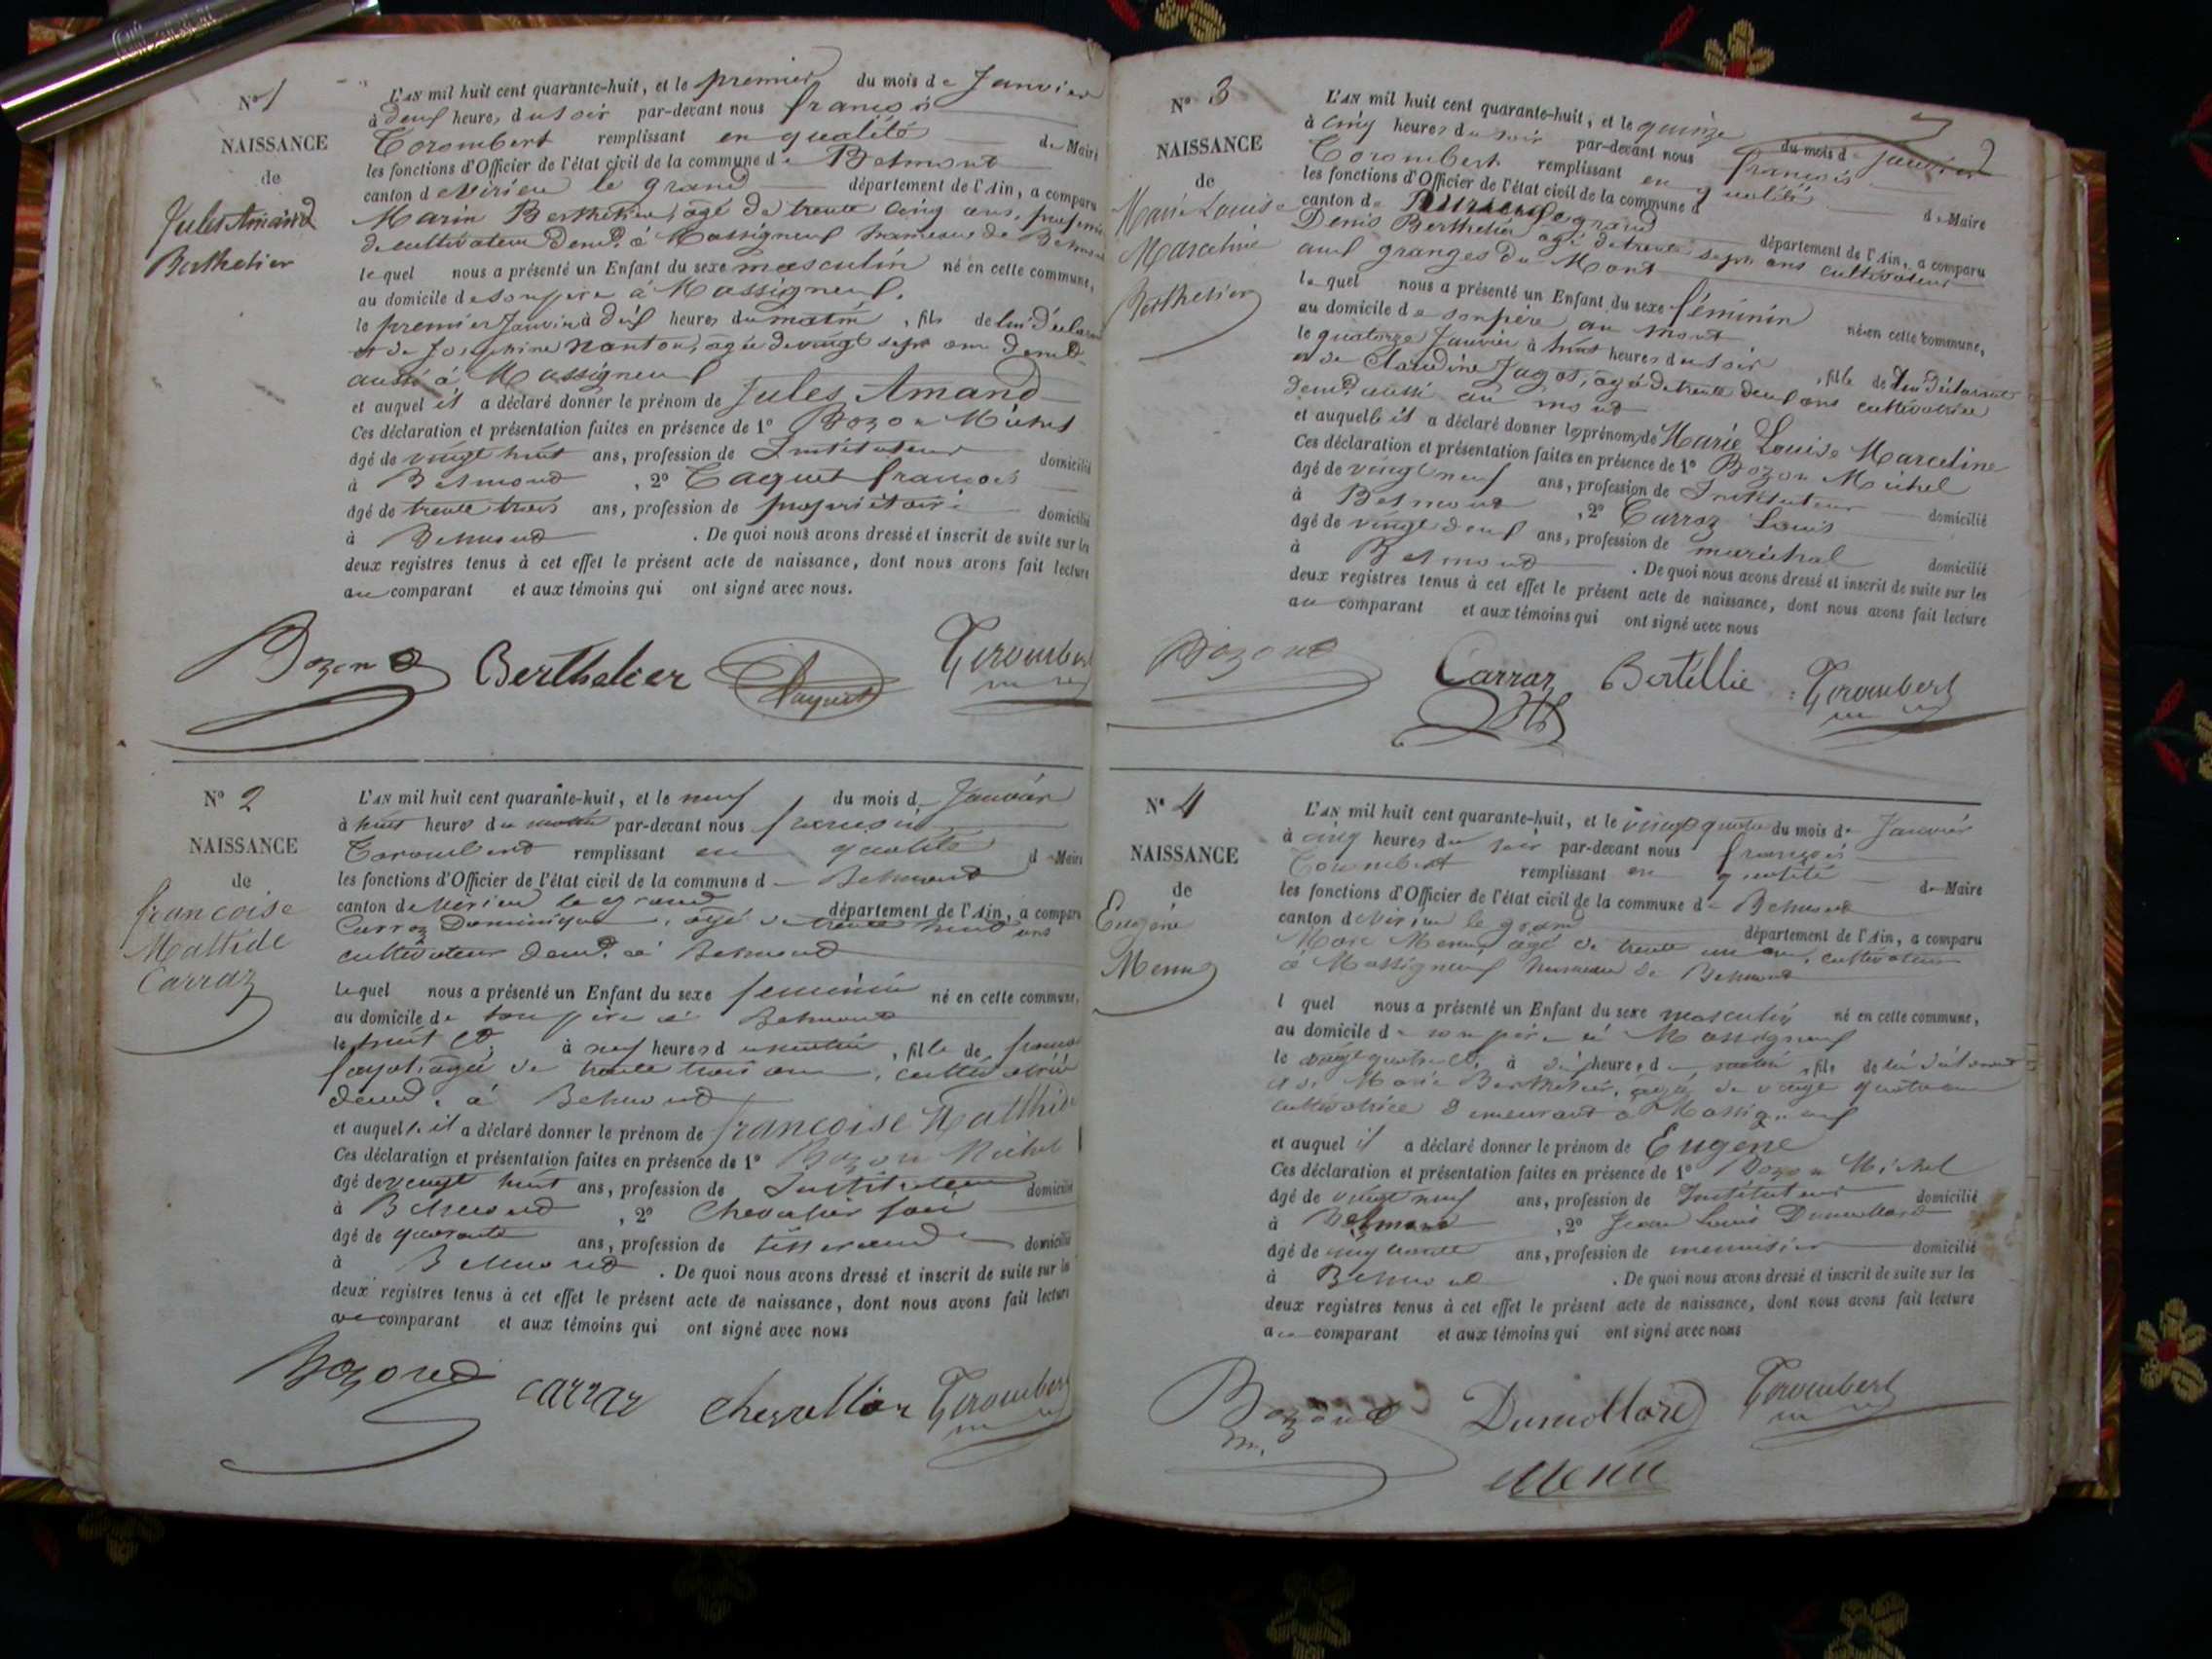 N° 1
NAISSANCE
de
Jules Amand
Berthelier
L'AN mil huit cent quarante-huit, et le premier du mois de Janvier
à deux heures du soir par-devant nous françois
Corombert remplissant en qualité de Maire
les fonctions d'Officier de l'état civil de la commune de Belmont
canton de Virieu le grand département de l'Ain, a comparu
Marin Berthelier, agé de trente cinq ans, profession
de cultivateur demt. à Massigneux hameau de Belmont
lequel nous a présenté un Enfant du sexe masculin né en cette commune,
au domicile de son père à Massigneux.
le premier Janvier à dix heures du matin, fils de lui Déclarant
et de Josephine Nanton, agée de vingt sept ans demt.
aussi à Massigneux
et auquel il a déclaré donner le prénom de Jules Amand
Ces déclaration et présentation faites en présence de 1° Bozon Michel
âgé de vingt huit ans, profession de Instituteur domicilié
à Belmond, 2° Taquet françois
âgé de trente trois ans, profession de propriétaire domicilié
à Belmond. De quoi nous avons dressé et inscrit de suite sur les
deux registres tenus à cet effet le présent acte de naissance, dont nous avons fait lecture
au comparant et aux témoins qui ont signé avec nous.
Bozond Berthelier Corombert
N° 2
NAISSANCE
de
françoise
Mathide
Carraz
L'AN mil huit cent quarante-huit, et le neuf du mois de Janvier
à huit heures du matin par-devant nous françois
Corombert remplissant en qualité de Maire
les fonctions d'Officier de l'état civil de la commune de Belmond
canton de Virieu le grand département de l'Ain, a comparu
Carraz Dominique, agé de trente huit ans
cultivateur demt. à Belmond
lequel nous a présenté un Enfant du sexe feminin né en cette commune,
au domicile de son père à Belmond
le huit ct. à neuf heures du matin, fille de
agée de trente trois ans, cultivatrice
demt. à Belmond
et auquelle il a déclaré donner le prénom de françoise Mathide
Ces déclaration et présentation faites en présence de 1° Bozon Michel
âgé de vingt huit ans, profession de Instituteur domicilié
à Belmond, 2° Chevalier
âgé de quarante ans, profession de tisserand domicilié
à Belmond. De quoi nous avons dressé et inscrit de suite sur les
deux registres tenus à cet effet le présent acte de naissance, dont nous avons fait lecture
au comparant et aux témoins qui ont signé avec nous
Bozond carraz chevallier Corombert
N° 3
NAISSANCE
de
Marie Louise
Marceline
Berthelier
2
L'AN mil huit cent quarante-huit, et le quinze du mois de Janvier
à cinq heures du soir par-devant nous françois
Corombert remplissant en qualité de Maire
les fonctions d'Officier de l'état civil de la commune d
canton de Virieu le grand département de l'Ain, a comparu
Denis Berthelier agé de trente sept ans cultivateur
aux granges du Mont
lequel nous a présenté un Enfant du sexe féminin né en cette commune,
au domicile de son père au mont
le quatorze Janvier à huit heures du soir, fille de lui déclarant
et de Claudine Jagot, agée de trente deux ans cultivatrice
demt. aussi au mont
et auquelle il a déclaré donner les prénoms de Marie Louise Marceline
Ces déclaration et présentation faites en présence de 1° Bozon Michel
âgé de vingt neuf ans, profession de Instituteur domicilié
à Belmont, 2° Carraz Louis
âgé de vingt deux ans, profession de maréchal domicilié
à Belmond. De quoi nous avons dressé et inscrit de suite sur les
deux registres tenus à cet effet le présent acte de naissance, dont nous avons fait lecture
au comparant et aux témoins qui ont signé avec nous
Bozond Carraz Bertellie Corombert
N° 4
NAISSANCE
de
Eugène
Menu
L'AN mil huit cent quarante-huit, et le vingt quatre du mois de Janvier
à cinq heures du soir par-devant nous françois
Corombert remplissant en qualité de Maire
les fonctions d'Officier de l'état civil de la commune de Belmond
canton de Virieu le grand département de l'Ain, a comparu
Marc Menu, agé de trente un ans, cultivateur
à Massigneux hameau de Belmond
l quel nous a présenté un Enfant du sexe masculin né en cette commune,
au domicile de son père à Massigneux
le vingt quatre ct. à dix heures du matin, fils de lui déclarant
et de Marie Berthelier, agée de vingt quatre ans
cultivatrice demeurant à Massigneux
et auquel il a déclaré donner le prénom de Eugène
Ces déclaration et présentation faites en présence de 1° Bozon Michel
âgé de vingt neuf ans, profession de Instituteur domicilié
à Belmond, 2° Jean Louis Dumollard
âgé de cinquante ans, profession de menuisier domicilié
à Belmond. De quoi nous avons dressé et inscrit de suite sur les
deux registres tenus à cet effet le présent acte de naissance, dont nous avons fait lecture
au comparant et aux témoins qui ont signé avec nous
Bozond Dumollard Corombert
m.
Menu